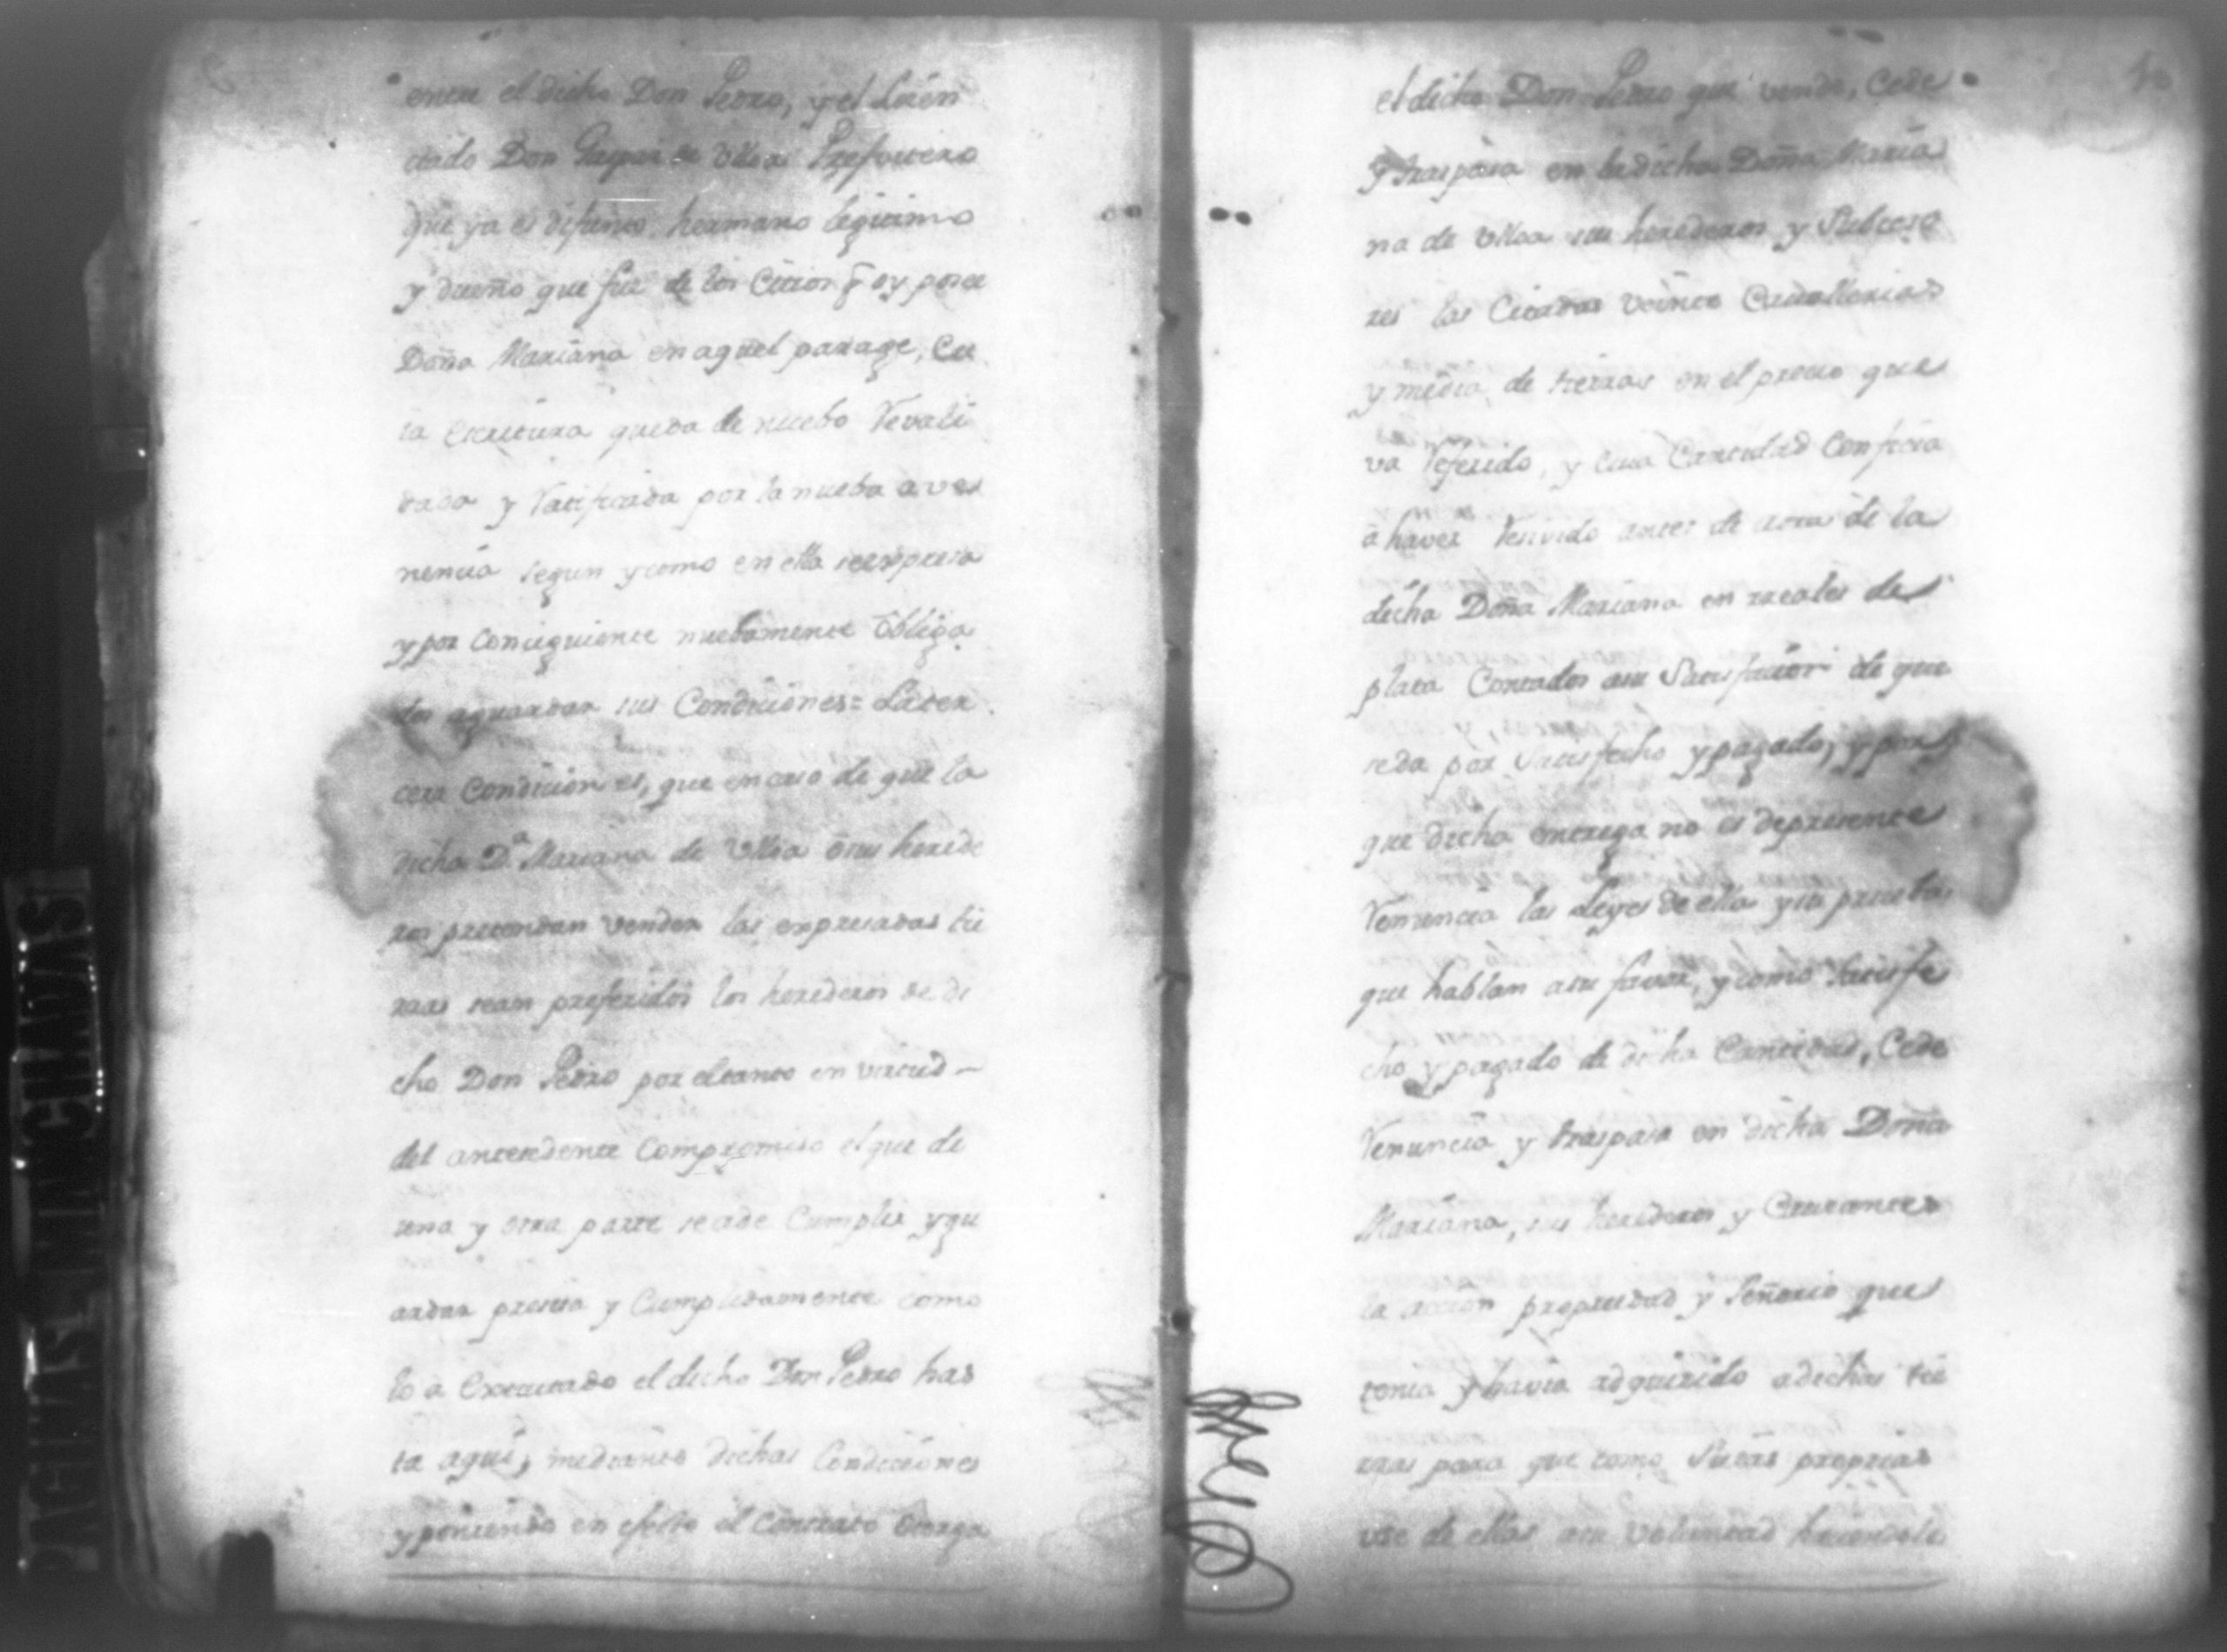 entre el dicho Don Pedro, y el Licen
ciado Don Gaspar de Ulloa Presvitero
que ya es difunto, hermano legitimo
y dueño que fue de los Citios q̃ oy posee
Doña Mariana en aquel parage, Cu
ia escritura queda de nuebo revali
dada y ratificada por la nueba aves
nencia segun y como en ella se expresa
y por Consiguiente nuebamente obliga
dos aguardar sus Condiciones = La ter
cera Condicion es, que en caso de que la
dicha D.ª Mariana de Ulloa o sus herede
ros pretendan vender las expresadas tie
rras sean preferidos los herederos de di
cho Don Pedro por el tanto en virtud
del antecedente Compromiso el que de
una y otra parte se a de Cumplir y gu
ardar precisa y Cumplidamente como
lo a executado el dicho Don Pedro has
ta aqui, mediante dichas Condiciones
y poniendo en efecto el Contrato otorga
el dicho Don Pedro que vende, Cede
y traspasa en la dicha Doña Maria
na de Ulloa sus herederos y Subceso
res las Citadas veinte Cavallerias
y media de tierras en el precio que
va referido, y cuia Cantidad Confiesa
a haver recivido antes de aora de la
dicha Doña Mariana en reales de
plata Contados a su Satisfacion de que
se da por Satisfecho y pagado, y por
que dicha entrega no es de presente
renuncia las Leyes de ella y su prueba
que hablan a su favor, y como Satisfe
cho y pagado de dicha Cantidad, Cede
renuncia y traspasa en dicha Doña
Mariana, sus herederos y
la accion propriedad y Señorio que
tenia y havia adquirido a dichas tie
rras para que como Suias proprias
use de ellas a su voluntad haciendole
PAGINAS MANCHADAS